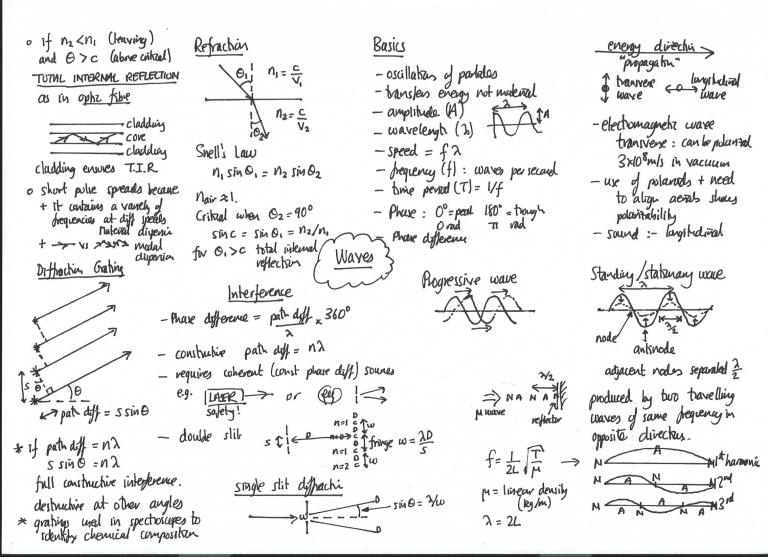 o if n₂<n₁ (leaving)
and θ>c (above critical)
TOTAL INTERNAL REFLECTION
as in optic fibre
cladding
core
cladding
cladding ensures T.I.R
o short pulse spreads because
+ it contains a variety of
frequencies at diff speeds
material dispersion
+ vs modal
dispersion
Diffraction Grating
s
θ
θ
↔ path diff = s sinθ
* if path diff = nλ
s sinθ = nλ
full constructive interference.
destructive at other angles
* gratings used in spectroscopes to
identify chemical composition
Refraction
θ₁ n₁ = c/v₁
n₂ = c/v₂
θ₂
Snell's Law
n₁ sinθ₁ = n₂ sinθ₂
nair ≈ 1.
Critical when θ₂=90°
sinc = sinθ₁ = n₂/n₁
for θ₁>c total internal
reflection
Waves
Interference
- Phase difference = path diff/λ × 360°
- constructive path diff = nλ
- requires coherent (const phase diff) sources
e.g. LASER → or
safety!
- double slit s D
D
n=1 C
D
n=0 C
D
n=1 C
D
n=2 C
w
w
fringe w = λD/s
single slit diffraction
w
D
D
sinθ = λ/w
Basics
- oscillations of particles
- transfers energy not material
- amplitude (A)
- wavelength (λ)
λ
A
- speed = fλ
- frequency (f) : waves per second
- time period (T) = 1/f
- Phase : 0°=peak 180°=trough
0 rad π rad
- Phase difference
Progressive wave
⇒ N A N A N
μwave
λ/2
reflector
f = 1/2L √T/μ →
μ = linear density
(kg/m)
λ = 2L
energy direction
"propagation"
transverse
wave
longitudinal
wave
- electromagnetic wave
transverse : can be polarised
3×10⁸m/s in vacuum
- use of polaroids + need
to align aerials shows
polarisability
- sound :- longitudinal
Standing/stationary wave
λ
λ/2
node
antinode
adjacent nodes separated λ/2
produced by two travelling
waves of same frequency in
opposite directions.
N A N 1st harmonic
N A N A N 2nd
N A N A N A N 3rd